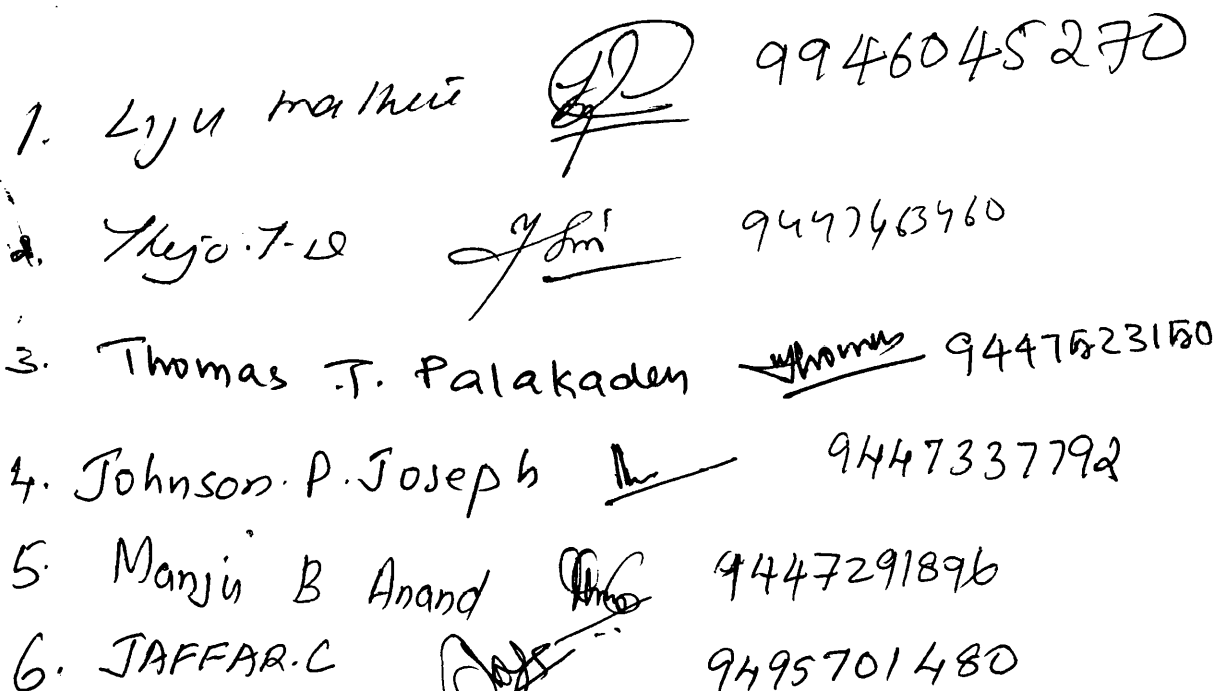 1. Liju mathew 9946045270
2. Thejo. 9447463460
3. Thomas .T. Palakaden Thomas 9447523150
4. Johnson. P. Joseph 9447337792
5. Manju B Anand 9447291896
6. JAFFAR.C 9495701480